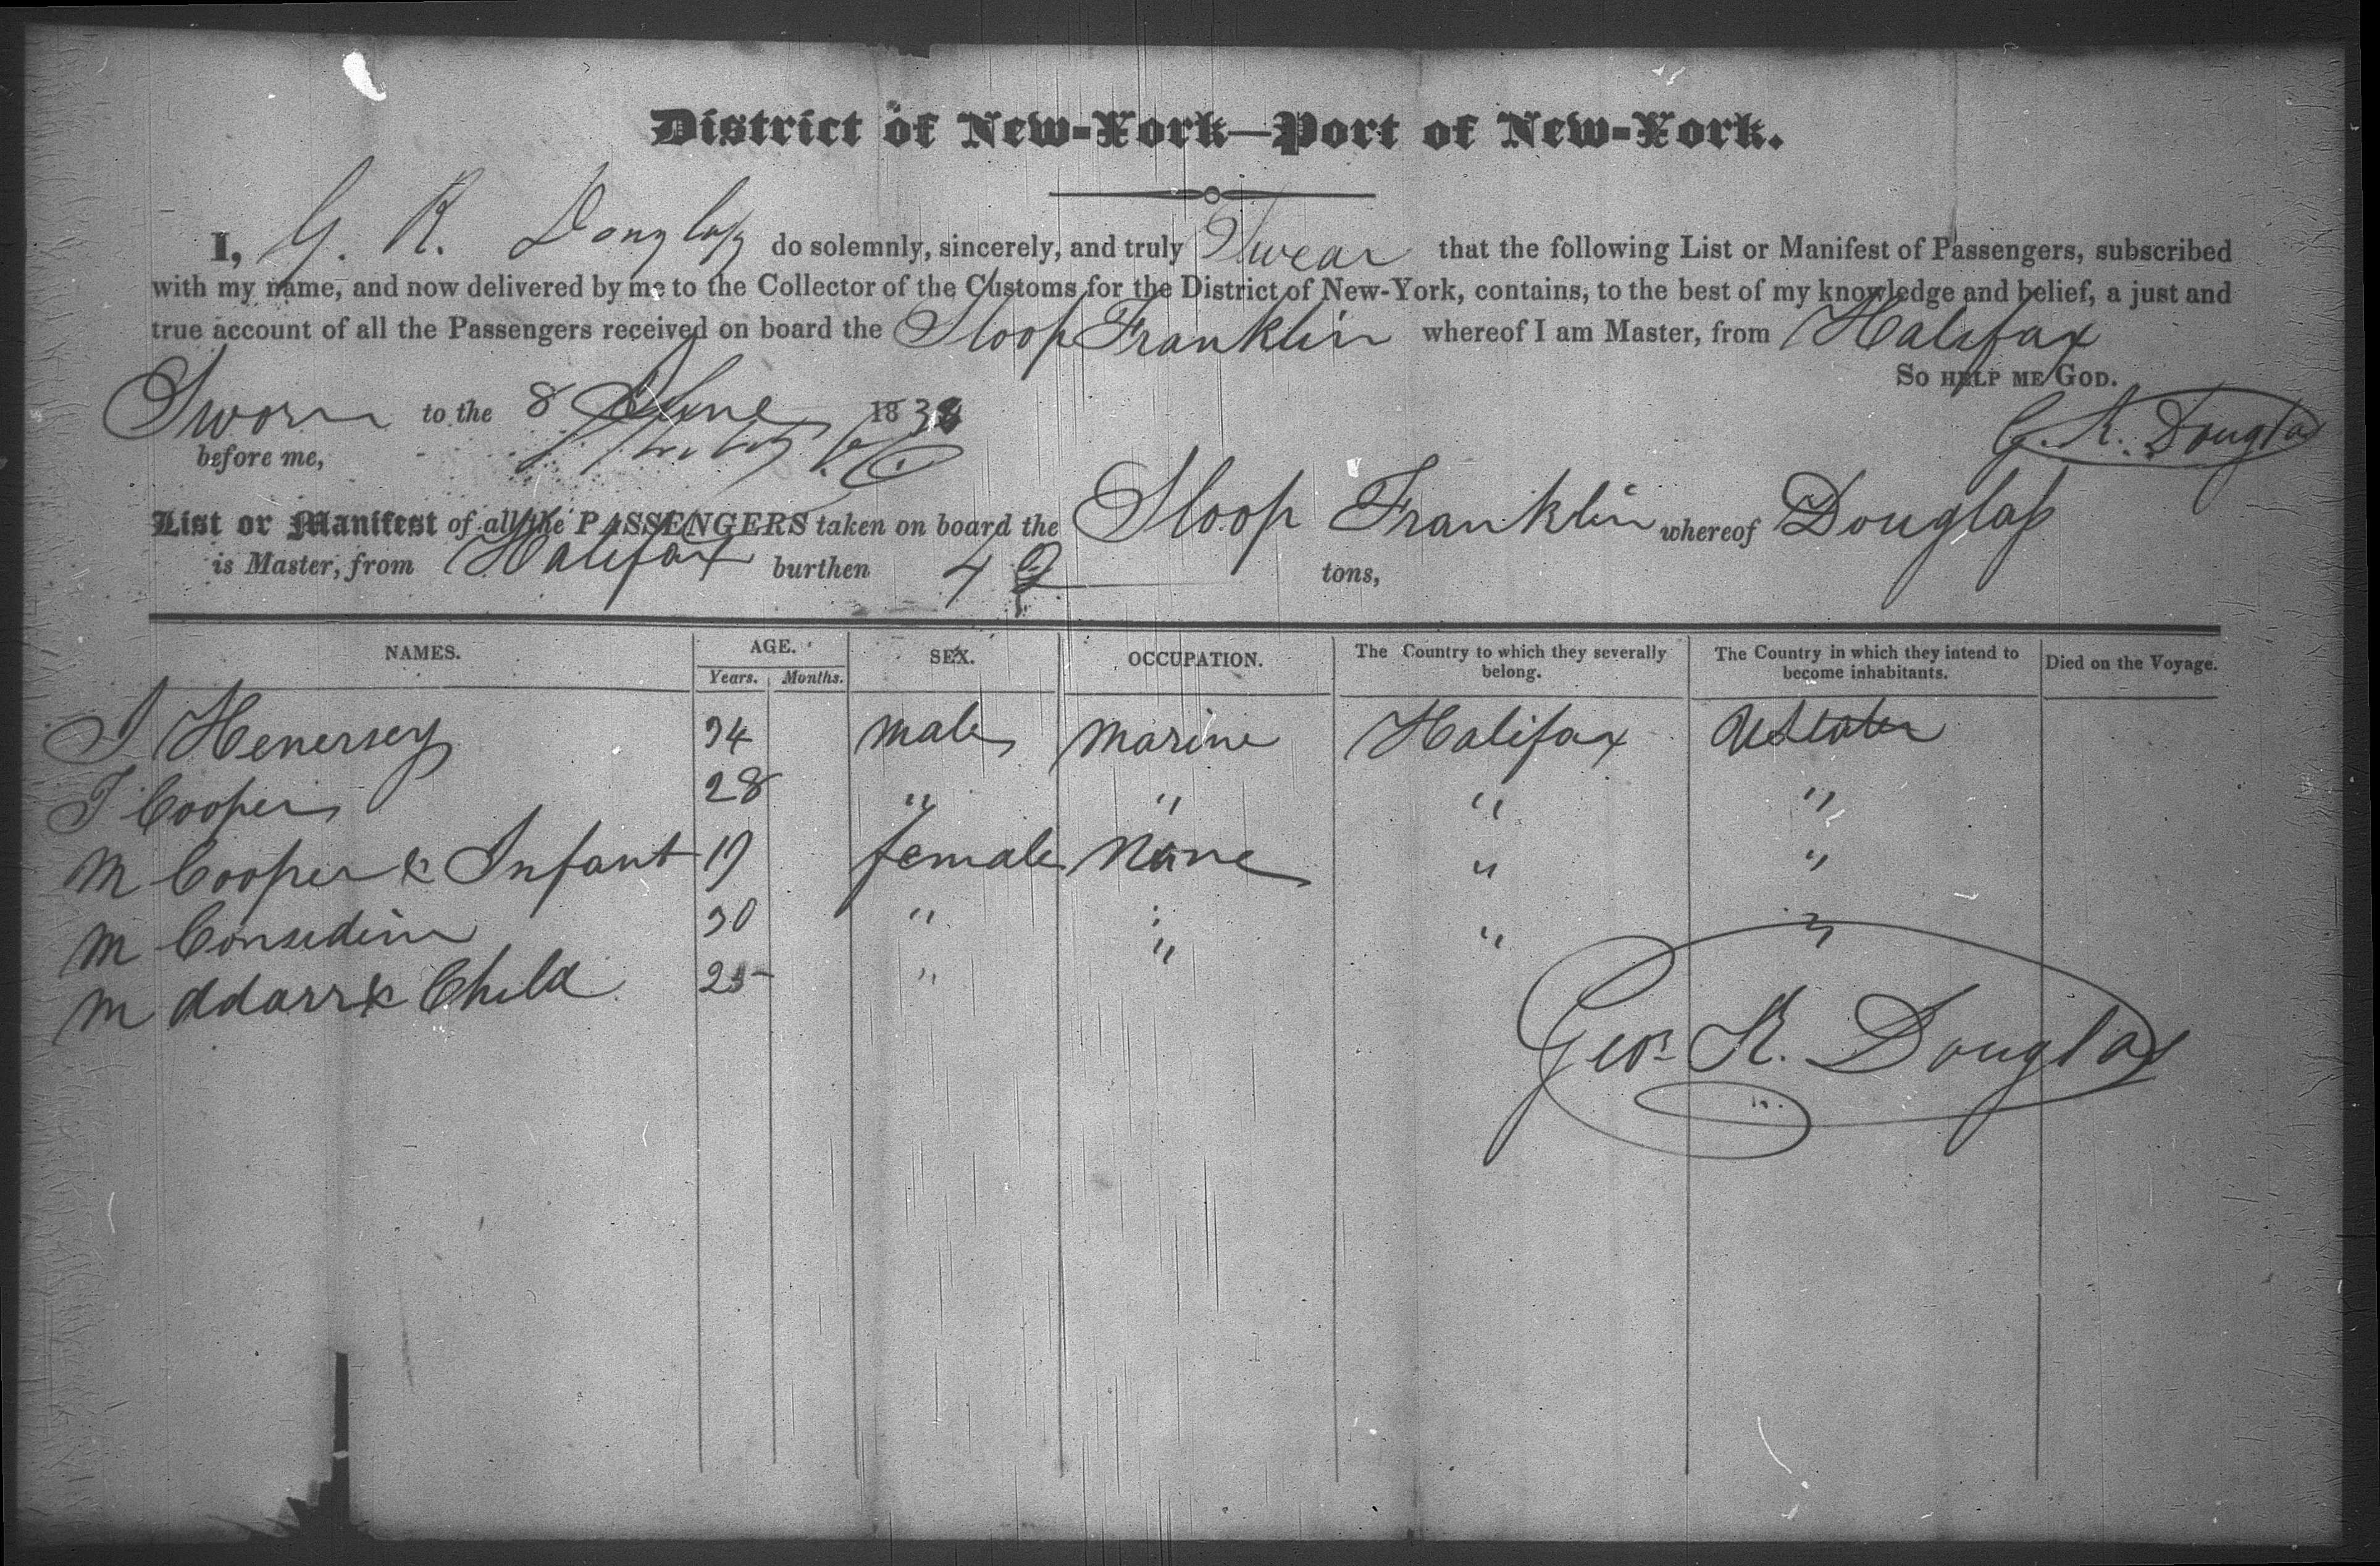 District of New-York—Port of New-York.
I, G. R. Douglass do solemnly, sincerely, and truly Swear that the following List or Manifest of Passengers, subscribed
with my name, and now delivered by me to the Collector of the Customs for the District of New-York, contains, to the best of my knowledge and belief, a just and
true account of all the Passengers received on board the Sloop Franklin whereof I am Master, from Halifax
So help me God.
Sworn to the 8 June 183
before me,
G. K. Douglas
List or Manifest of all the PASSENGERS taken on board the Sloop Franklin whereof Douglass
is Master, from Halifax burthen 49 tons,
NAMES. AGE. SEX. OCCUPATION. The Country to which they severally belong. The Country in which they intend to become inhabitants. Died on the Voyage.
Years. Months.
J Henersey 34 male marine Halifax U States
J Cooper 28 " " " "
M Cooper & Infant 19 female None " "
M Considine 30 " " " "
M Adarr & Child 25 "
Geo. K. Douglas